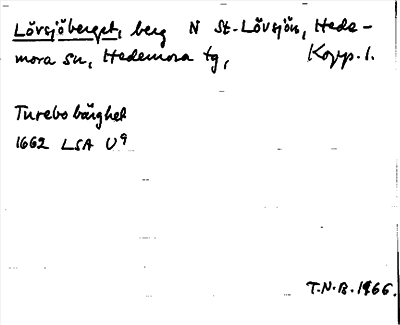 Lövsjöberget, berg N St-Lövsjön, Hede-
mora sn, Hedemora tg, Kopp. l.
Turebo bärghet
1662 LSA U9
T.N.B. 1966.